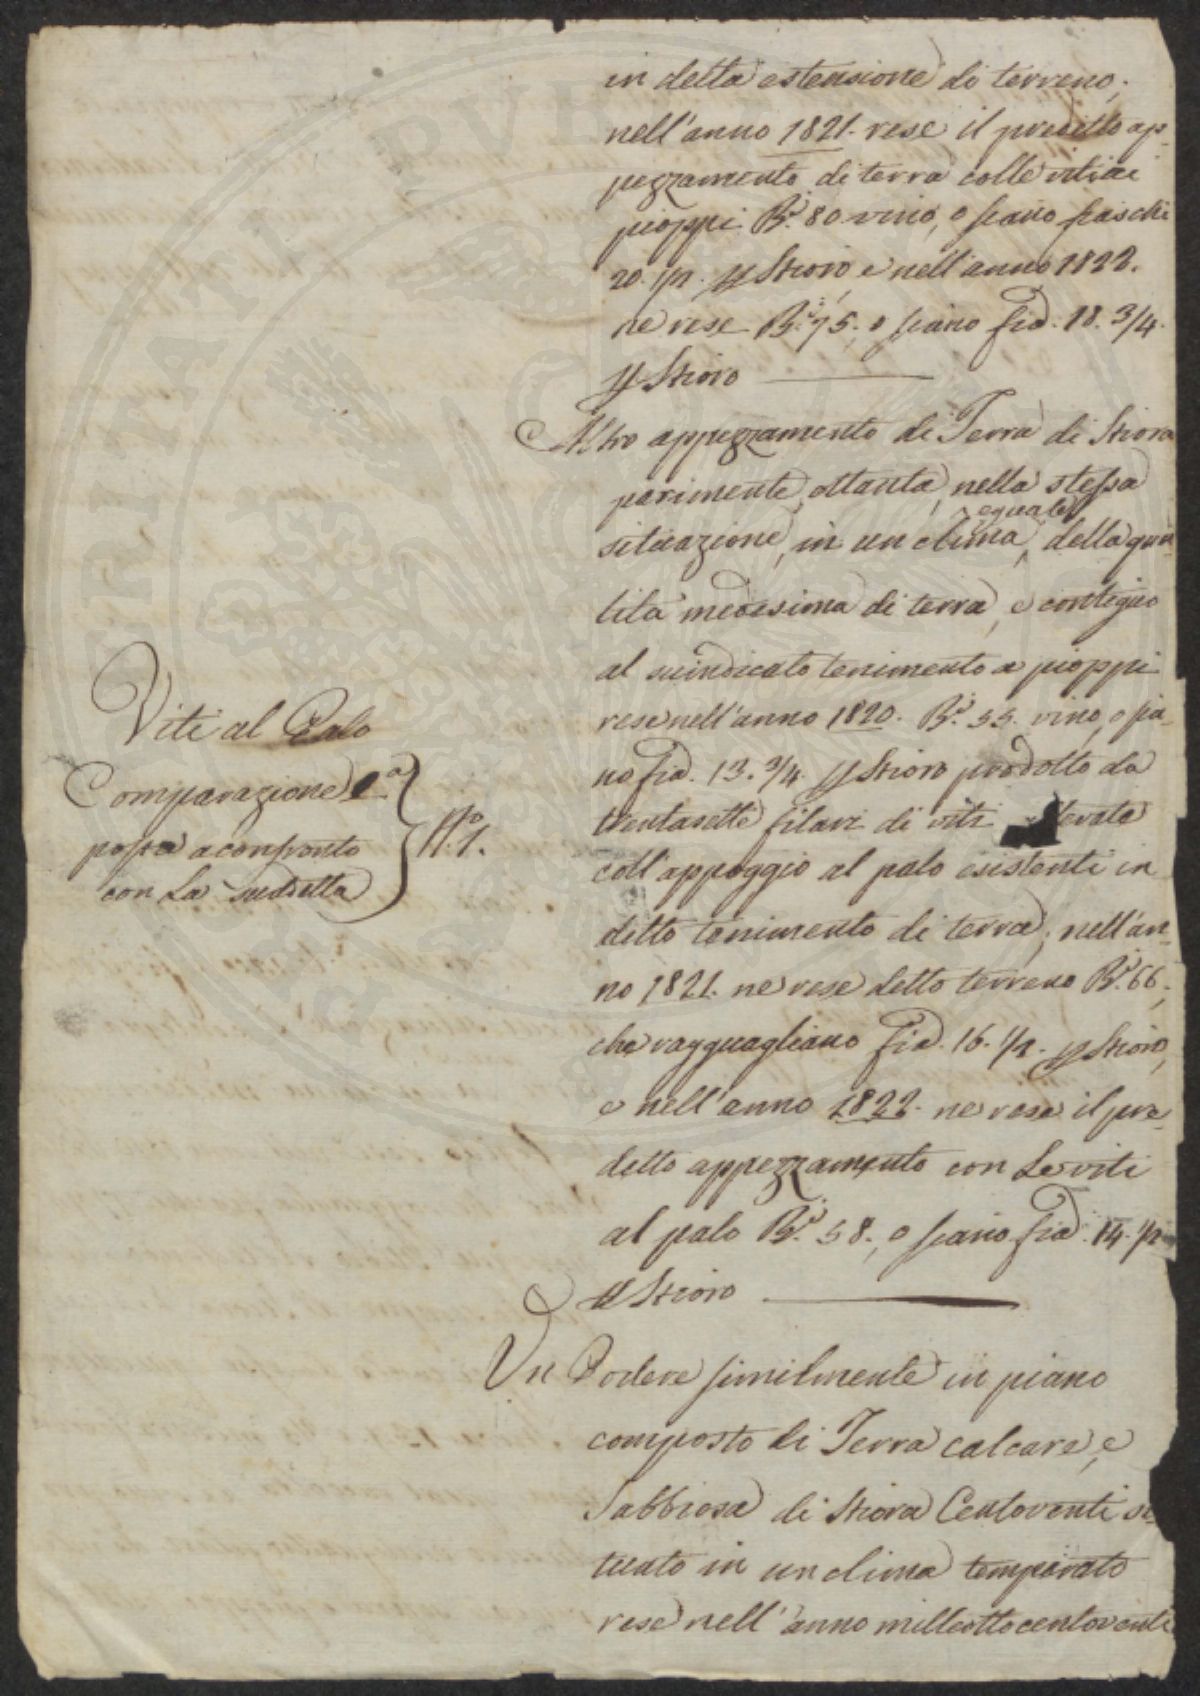 in detta estensione di terreno;
nell'anno 1821. rese il predetto ap-
pezzamento di terra colle viti ai
pioppi B.i 80 vino, o siano fiaschi
20. 1/2. p Stioro e nell'anno 1822.
ne rese B.i 75., o siano fia. 18. 3/4.
p Stioro
Altro appezzamento di Terra di Stiora
parimente ottanta, nella stessa
situazione, in un clima eguale, della quan
tità medesima di terra, e contiguo
al suindicato tenimento a pioppi
rese nell'anno 1820. B.i 55. vino, o sia-
no fia. 13. 3/4. p Stioro prodotto da
trentasette filari di viti levate
coll'appoggio al palo esistenti in
detto tenimento di terra; nell'an-
no 1821. ne rese detto terreno B.i 66.;
che ragguagliano fia. 16. 1/2. p Stioro,
e nell'anno 1822. ne rese il pre-
detto appezzamento con Le viti
al palo B.i 58., o siano fia. 14. 1/2
p Stioro
Viti al Palo
Comparazione 1.a
posta a confronto
con La Sudetta
N.o 1.
Un Podere similmente in piano
composto di Terra calcare, e
Sabbiosa di Stiora Centoventi si-
tuato in un clima temperato
rese nell'anno milleottocentoventi